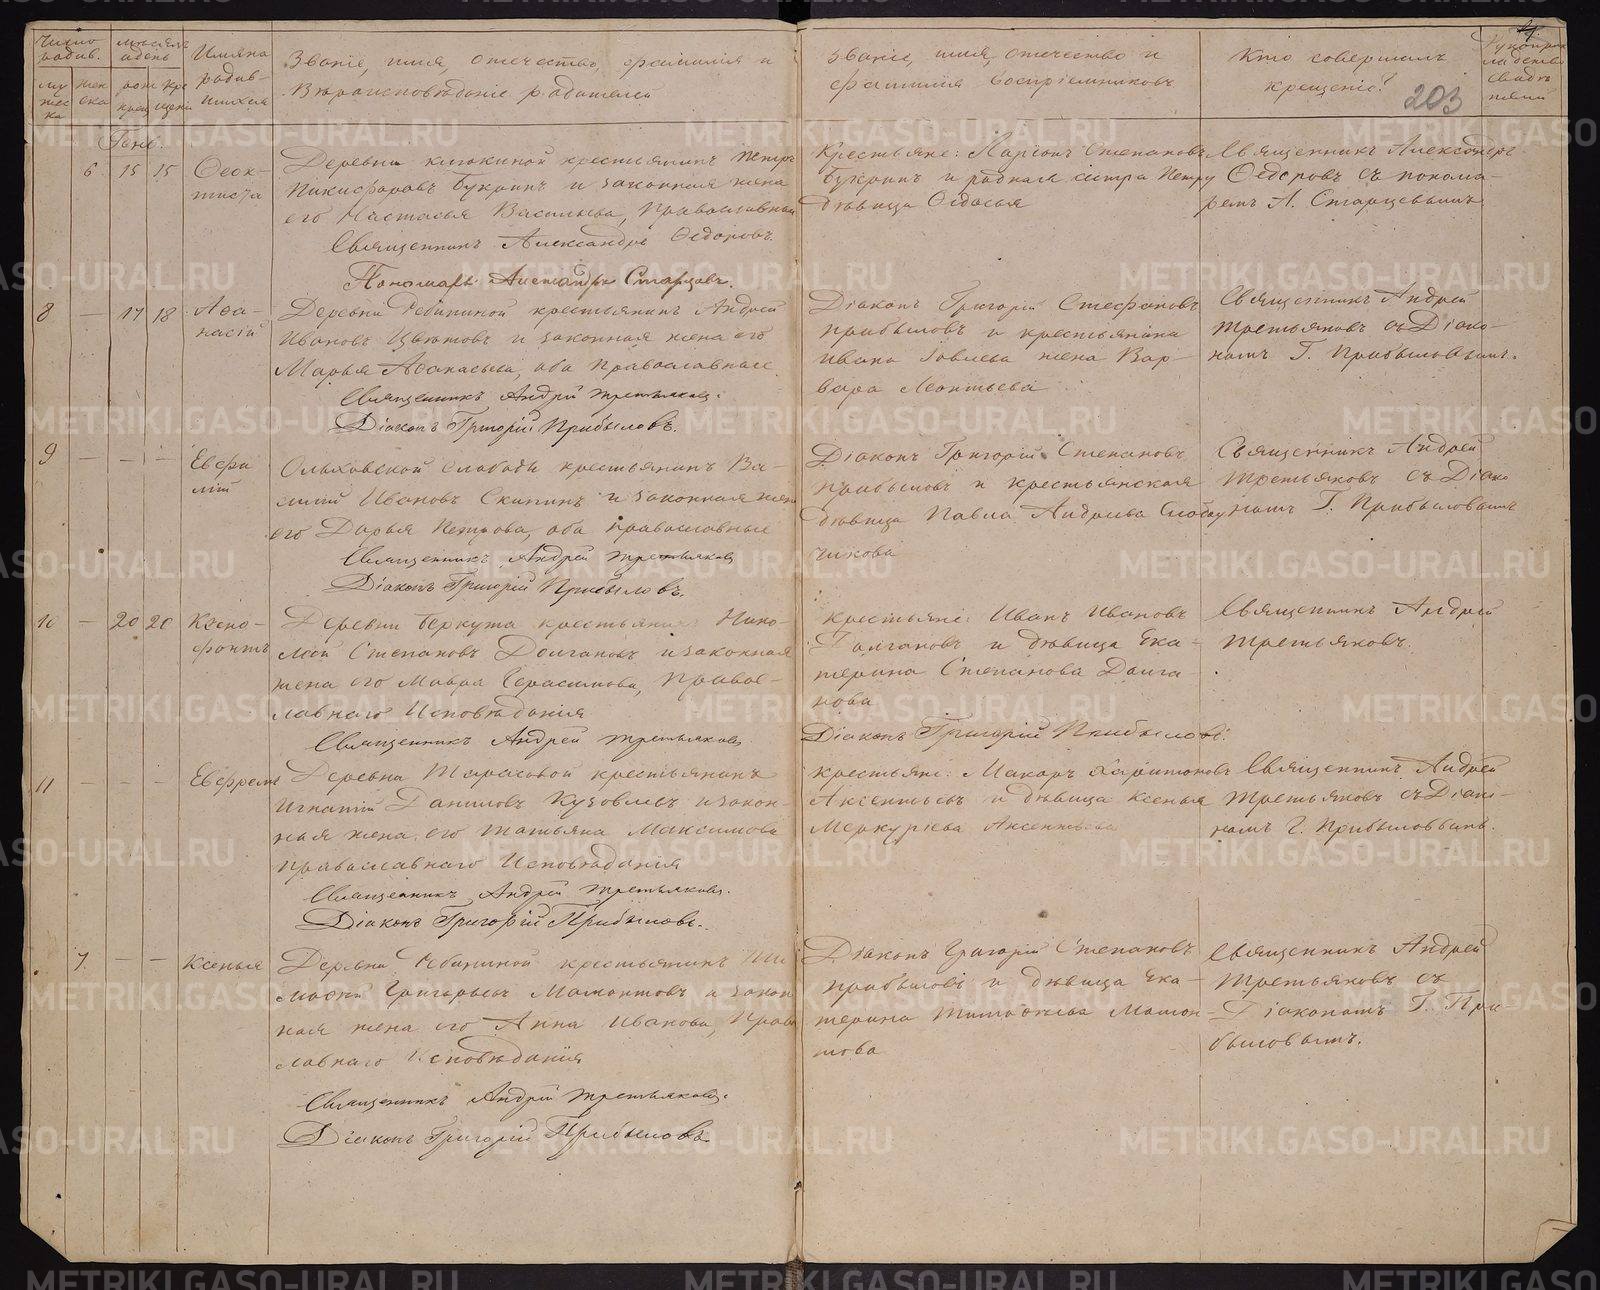 Число родив.
мѣсяцъ и день
Имяна родив-
шихся
Званіе, имя, отечество, фамилія и
Вѣроисповѣданіе родителей
Званіе, имя, отечество и
фамилія воспріемниковъ
Кто совершалъ
крещеніе?
203
Генв.
6 15 15
Ѳеок-
тиста
Деревни крестьянинъ Петръ
Никифоровъ Букринъ и законная жена
его Настасья Васильева, Православные
Священникъ Александръ Ѳедоровъ.
Пономарь Александръ Старцевъ.
Крестьяне: Ларіонъ Степановъ
Букринъ и родная сестра Петру
дѣвица Ѳедосья
Священникъ Александръ
Ѳедоровъ съ понома-
ремъ А. Старцевымъ
8 — 17 18
Аѳа-
насій
Деревни Рябининой крестьянинъ Андрей
Ивановъ и законная жена его
Марья Аѳанасьева, оба православные.
Священникъ Андрей Третьяковъ.
Діаконъ Григорій Прибыловъ.
Діаконъ Григорій Стефановъ
Прибыловъ и крестьянина
Ивана жена Вар-
вара Леонтьева
Священникъ Андрей
Третьяковъ съ Діако-
номъ Г. Прибыловымъ.
9 — — —
Евфи
мій
Ольховской слободы крестьянинъ Ва-
силій Ивановъ Скипинъ и законная жена
его Дарья Петрова, оба православные
Священникъ Андрей Третьяковъ
Діаконъ Григорій Прибыловъ.
Діаконъ Григорій Степановъ
Прибыловъ и крестьянская
дѣвица Павла Андреева Слобод
чикова
Священникъ Андрей
Третьяковъ съ Діако
номъ Г. Прибыловымъ
10 — 20 20
Ксено-
фонтъ
Деревни Беркута крестьянинъ Нико-
лай Степановъ Долгановъ и законная
жена его Мавра Герасимова, Правос-
лавнаго Исповѣданія
Священникъ Андрей Третьяковъ
Крестьяне: Иванъ Ивановъ
Долгановъ и дѣвица Ека-
терина Степанова Долга-
нова
Діаконъ Григорій Прибыловъ.
Священникъ Андрей
Третьяковъ.
11 — — —
Евфремъ
Деревни Тарасовой крестьянинъ
Игнатій Даниловъ Кузовлевъ и закон-
ная жена его Татьяна Максимова
Православнаго Исповѣданія
Священникъ Андрей Третьяковъ.
Діаконъ Григорій Прибыловъ.
Крестьяне: Макаръ Харитоновъ
Аксентьевъ и дѣвица Ксенья
Меркурьева Аксентьева
Священникъ Андрей
Третьяковъ съ Діако-
номъ Г. Прибыловымъ.
7 — —
Ксенья
Деревни Рябининой крестьянинъ Ти
моѳей Григорьевъ Мамонтовъ и закон
ная жена его Анна Иванова, Право
славнаго Исповѣданія
Священникъ Андрей Третьяковъ.
Діаконъ Григорій Прибыловъ.
Діаконъ Григорій Степановъ
Прибыловъ и дѣвица Ека-
терина Тимоѳеева Мамон-
това
Священникъ Андрей
Третьяковъ съ
Діакономъ Г. При
быловымъ.
METRIKI.GASO-URAL.RU